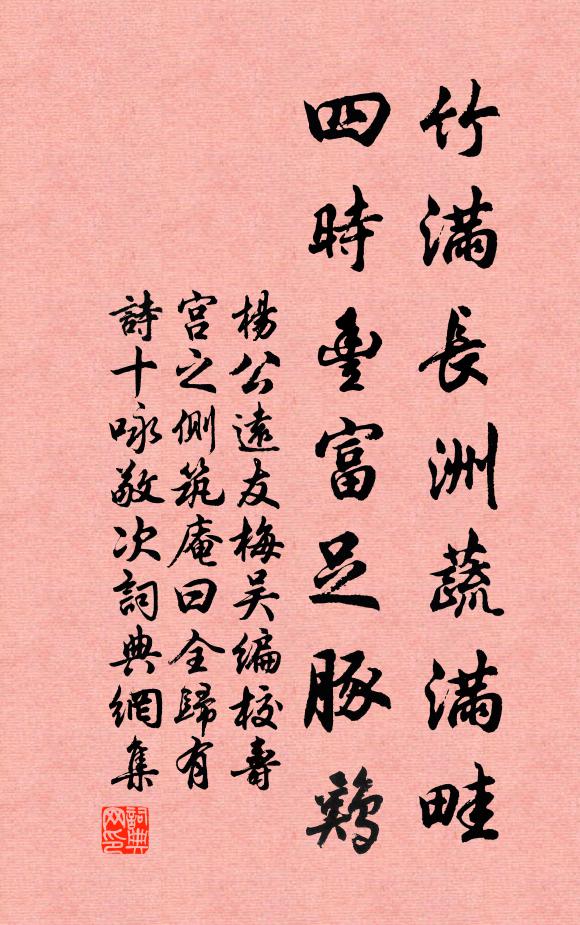 竹滿長洲蔬滿畦
四時豊富足豚鷄
楊公遠友梅吴編校壽
宫之側筑庵曰全歸有
詩十咏敬次詞典網集
詞典网印